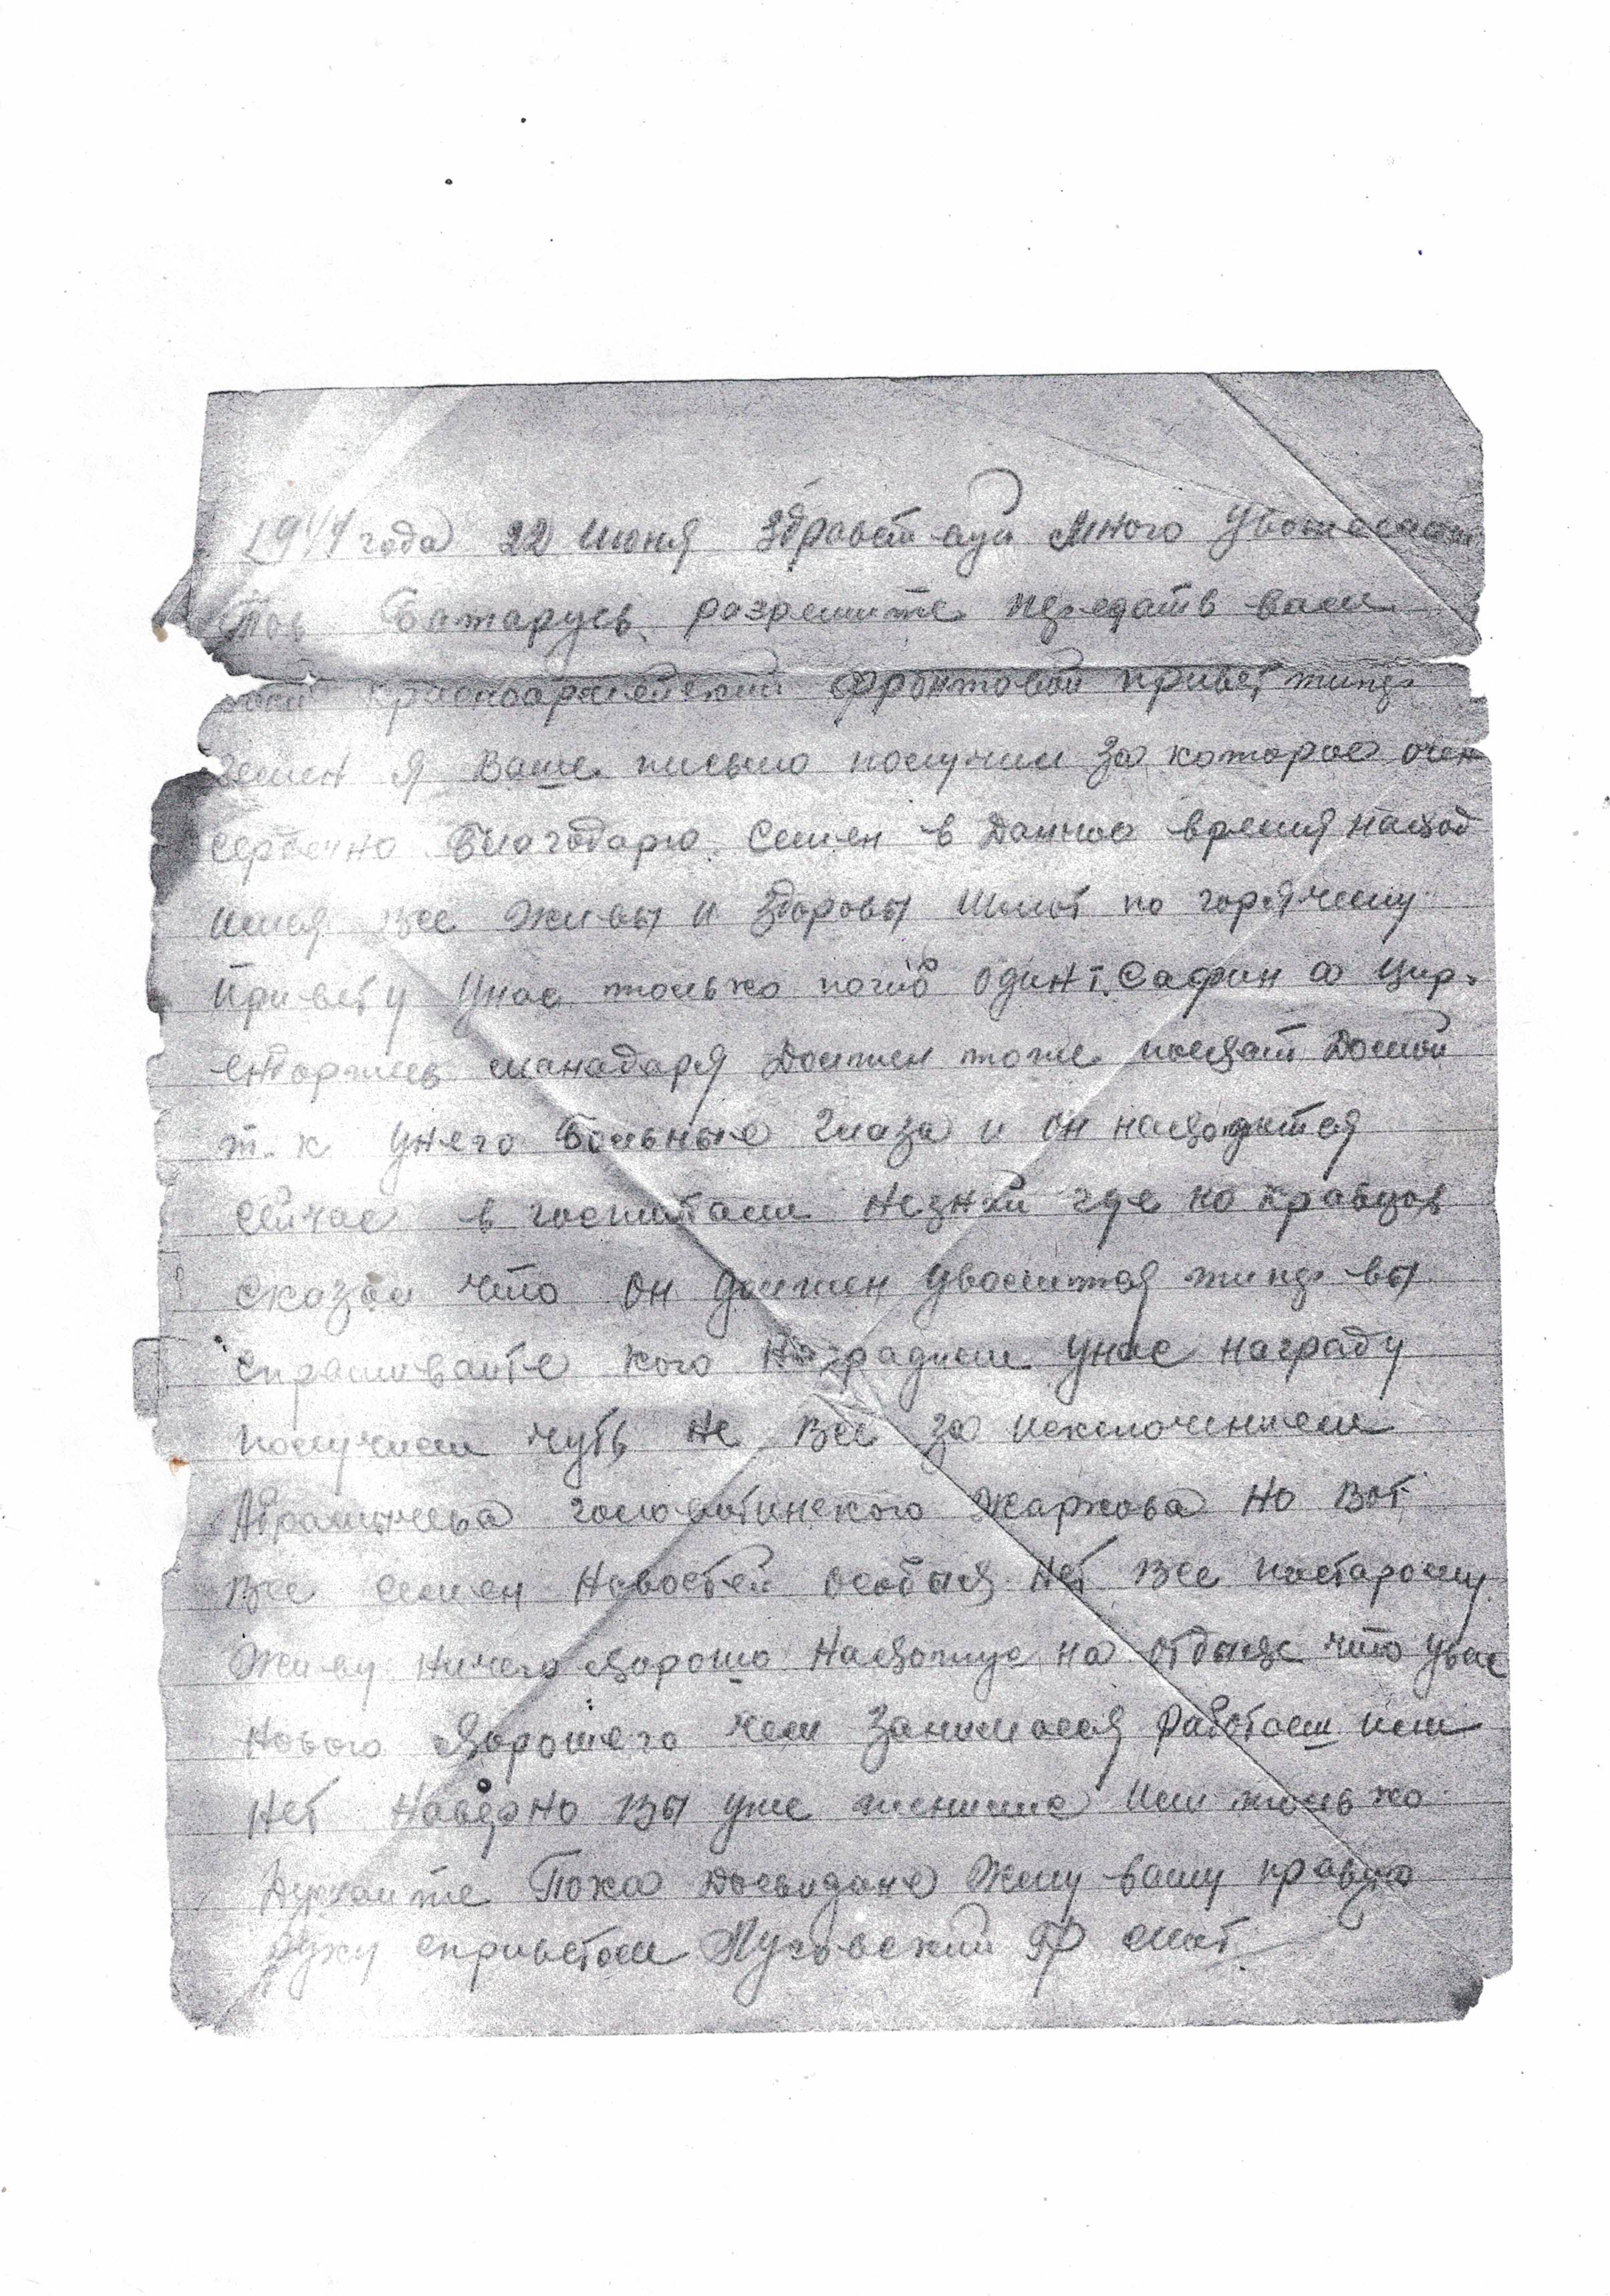 1944 года 22 июня Здравствуй Много Уважаемый
Тов Батарусь. разрешите передать вам
свой красноармейский фронтовой привет типер
Семен я ваше письмо получил за которое очен
сердечно благодарю. Семен в данное время наход
имся все живы и здоровы шлют по горячему
привету Унас только погиб один т. Сафин а Цир-
должен тоже поехат домой
т. к Унего больные глаза и он находится
сейчас в госпитали незнаю где но кравцов
сказал что он должен уволится типер вы
спрашиваите кого наградили Унас награду
получили чуть не все за исключением
Жаркова но вот
все семен новостей особых нет все постарому
живу ничего хорошо нахожус на отдыхе что Увас
нового хорошего чем занимаеся работаеш или
нет наверно вы уже женили или только
думаите Пока досвидане жму вашу правую
руку сприветом